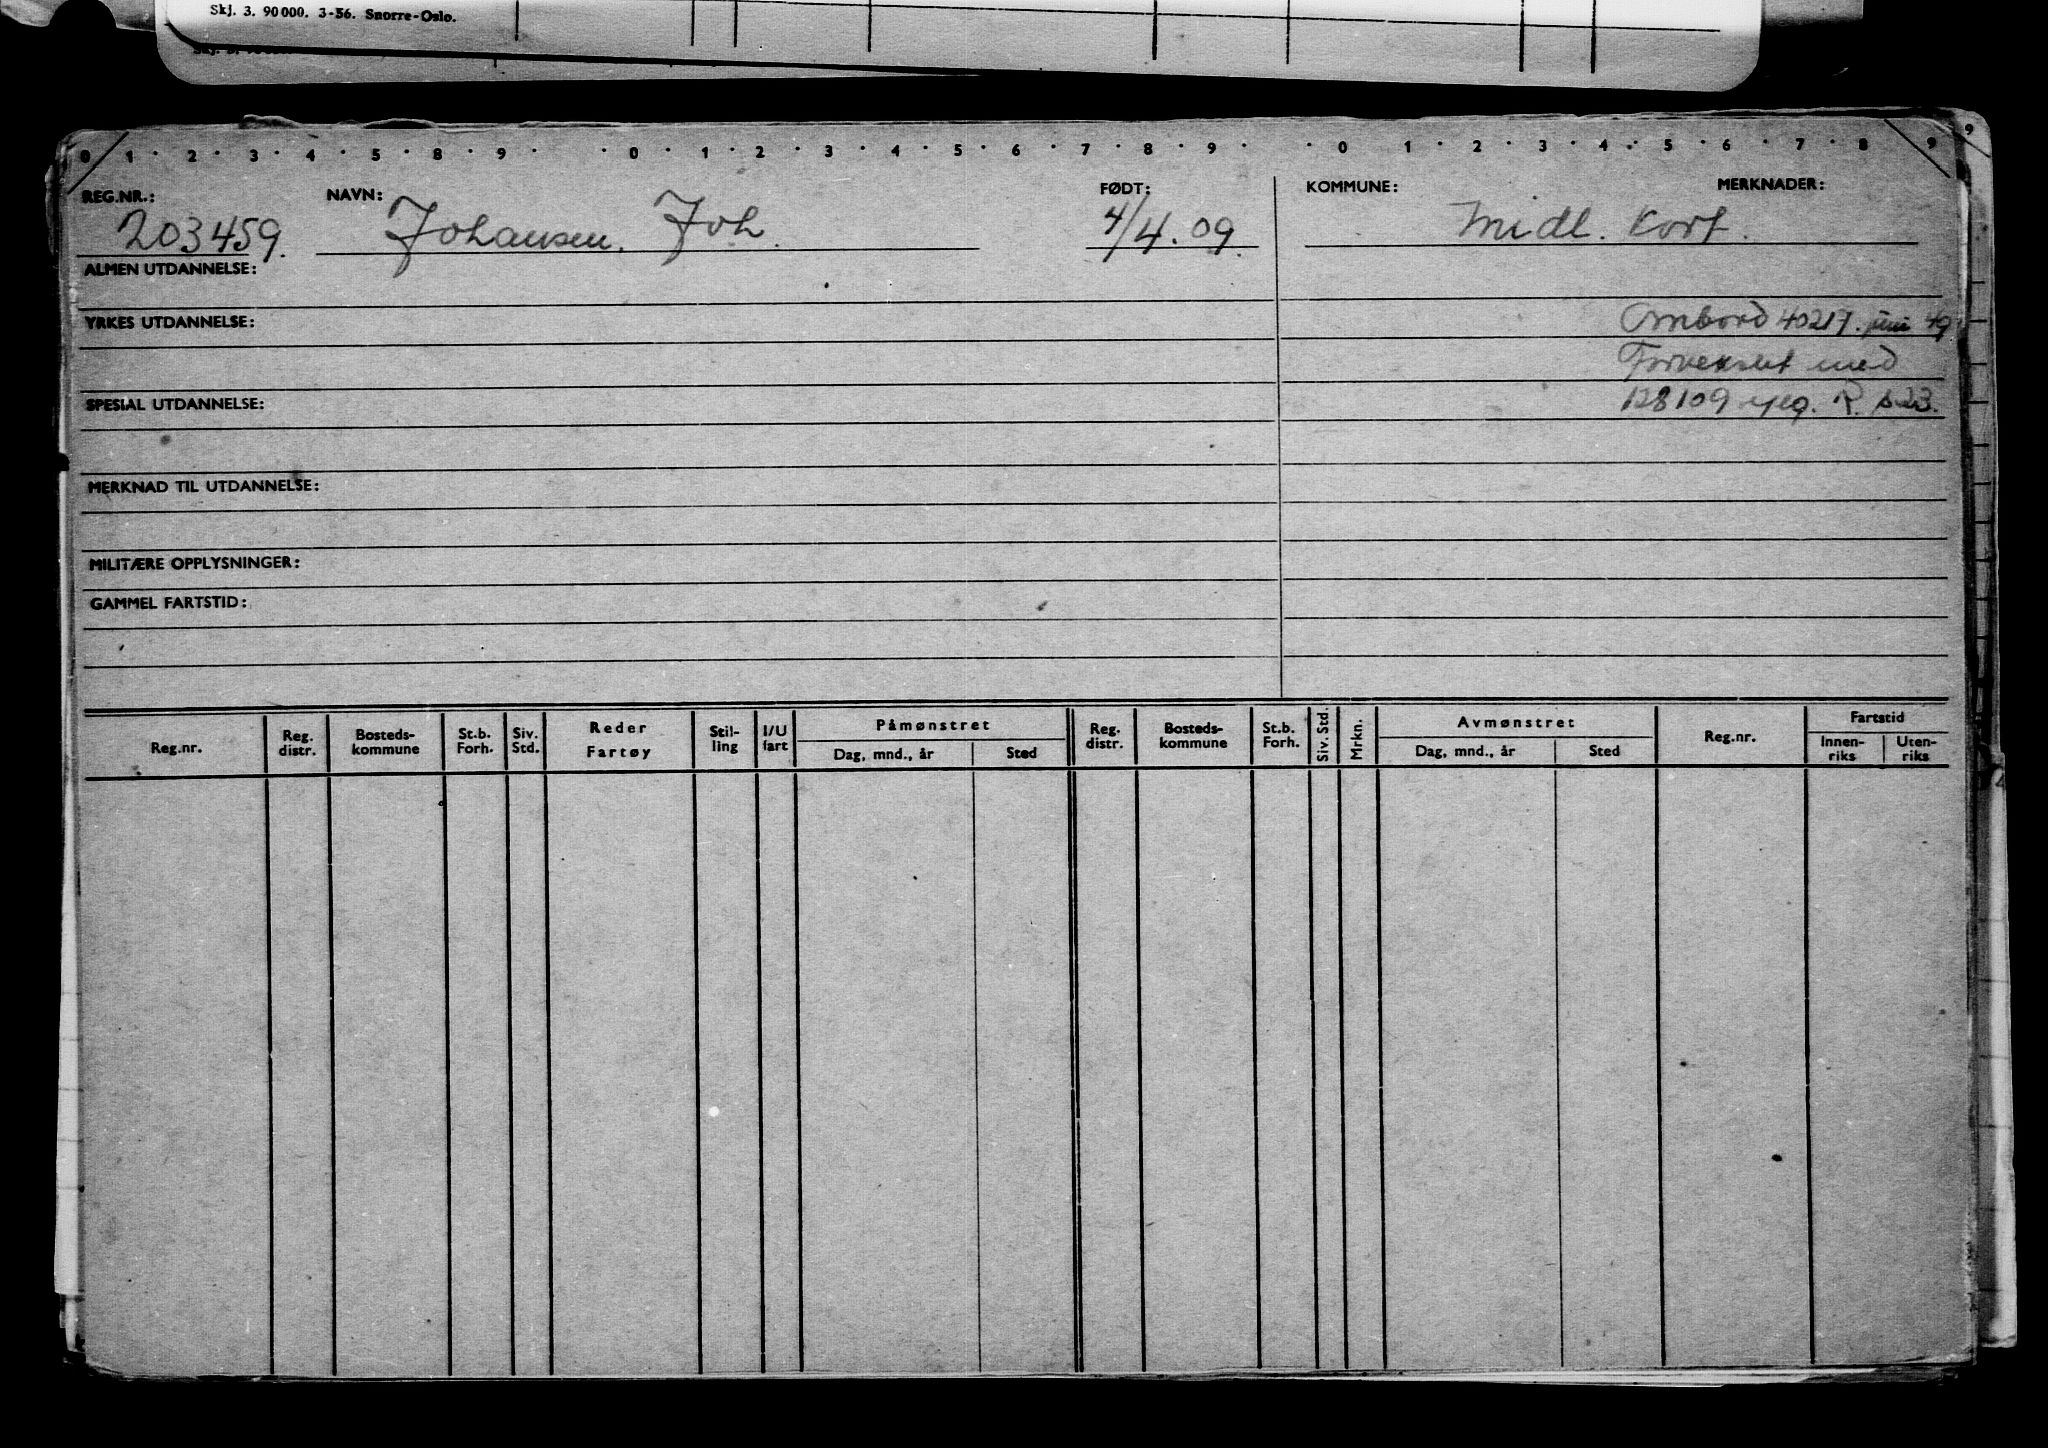 Skj. 3. 90 000. 3-56. Snorre-Oslo.
0 1 2 3 4 5 8 9 0 1 2 3 4 5 6 7 8 9 0 1 2 3 4 5 6 7 8 9
REG.NR.: NAVN: FØDT: KOMMUNE: MERKNADER:
203459. Johansen, Joh. 4/4.09. Midl. Kort.
ALMEN UTDANNELSE:
YRKES UTDANNELSE: Ombord 40217. juni 49
Forvekslet med
SPESIAL UTDANNELSE: 128109 R. s23.
MERKNAD TIL UTDANNELSE:
MILITÆRE OPPLYSNINGER:
GAMMEL FARTSTID:
Reg.nr. Reg. distr. Bosteds-kommune St.b. Forh. Siv. Std. Reder Fartøy Stil-ling I/U fart Påmønstret Dag, mnd., år Sted Reg. distr. Bosteds-kommune St.b. Forh. Siv. Std. Mrkn. Avmønstret Dag, mnd., år Sted Reg.nr. Fartstid Innen-riks Uten-riks